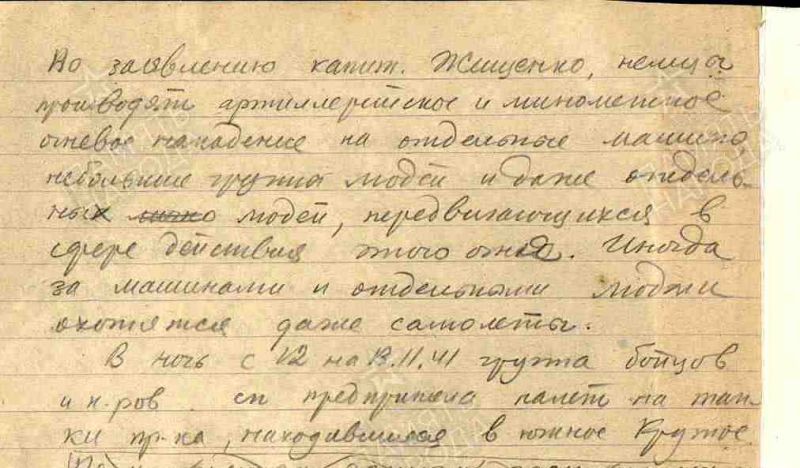 По заявлению капит. Жищенко, немцы
производят артиллерийское и минометное
огневое нападение на отдельные машины,
небольшие группы людей и даже отдель-
ных людей, передвигающихся в
сфере действия этого огня. Иногда
за машинами и отдельными людьми
охотятся даже самолеты.
В ночь с 12 на 13.11.41 группа бойцов
и н.ров. сп предприняла налет на тан-
ки пр-ка, находившиеся в южное Крутое